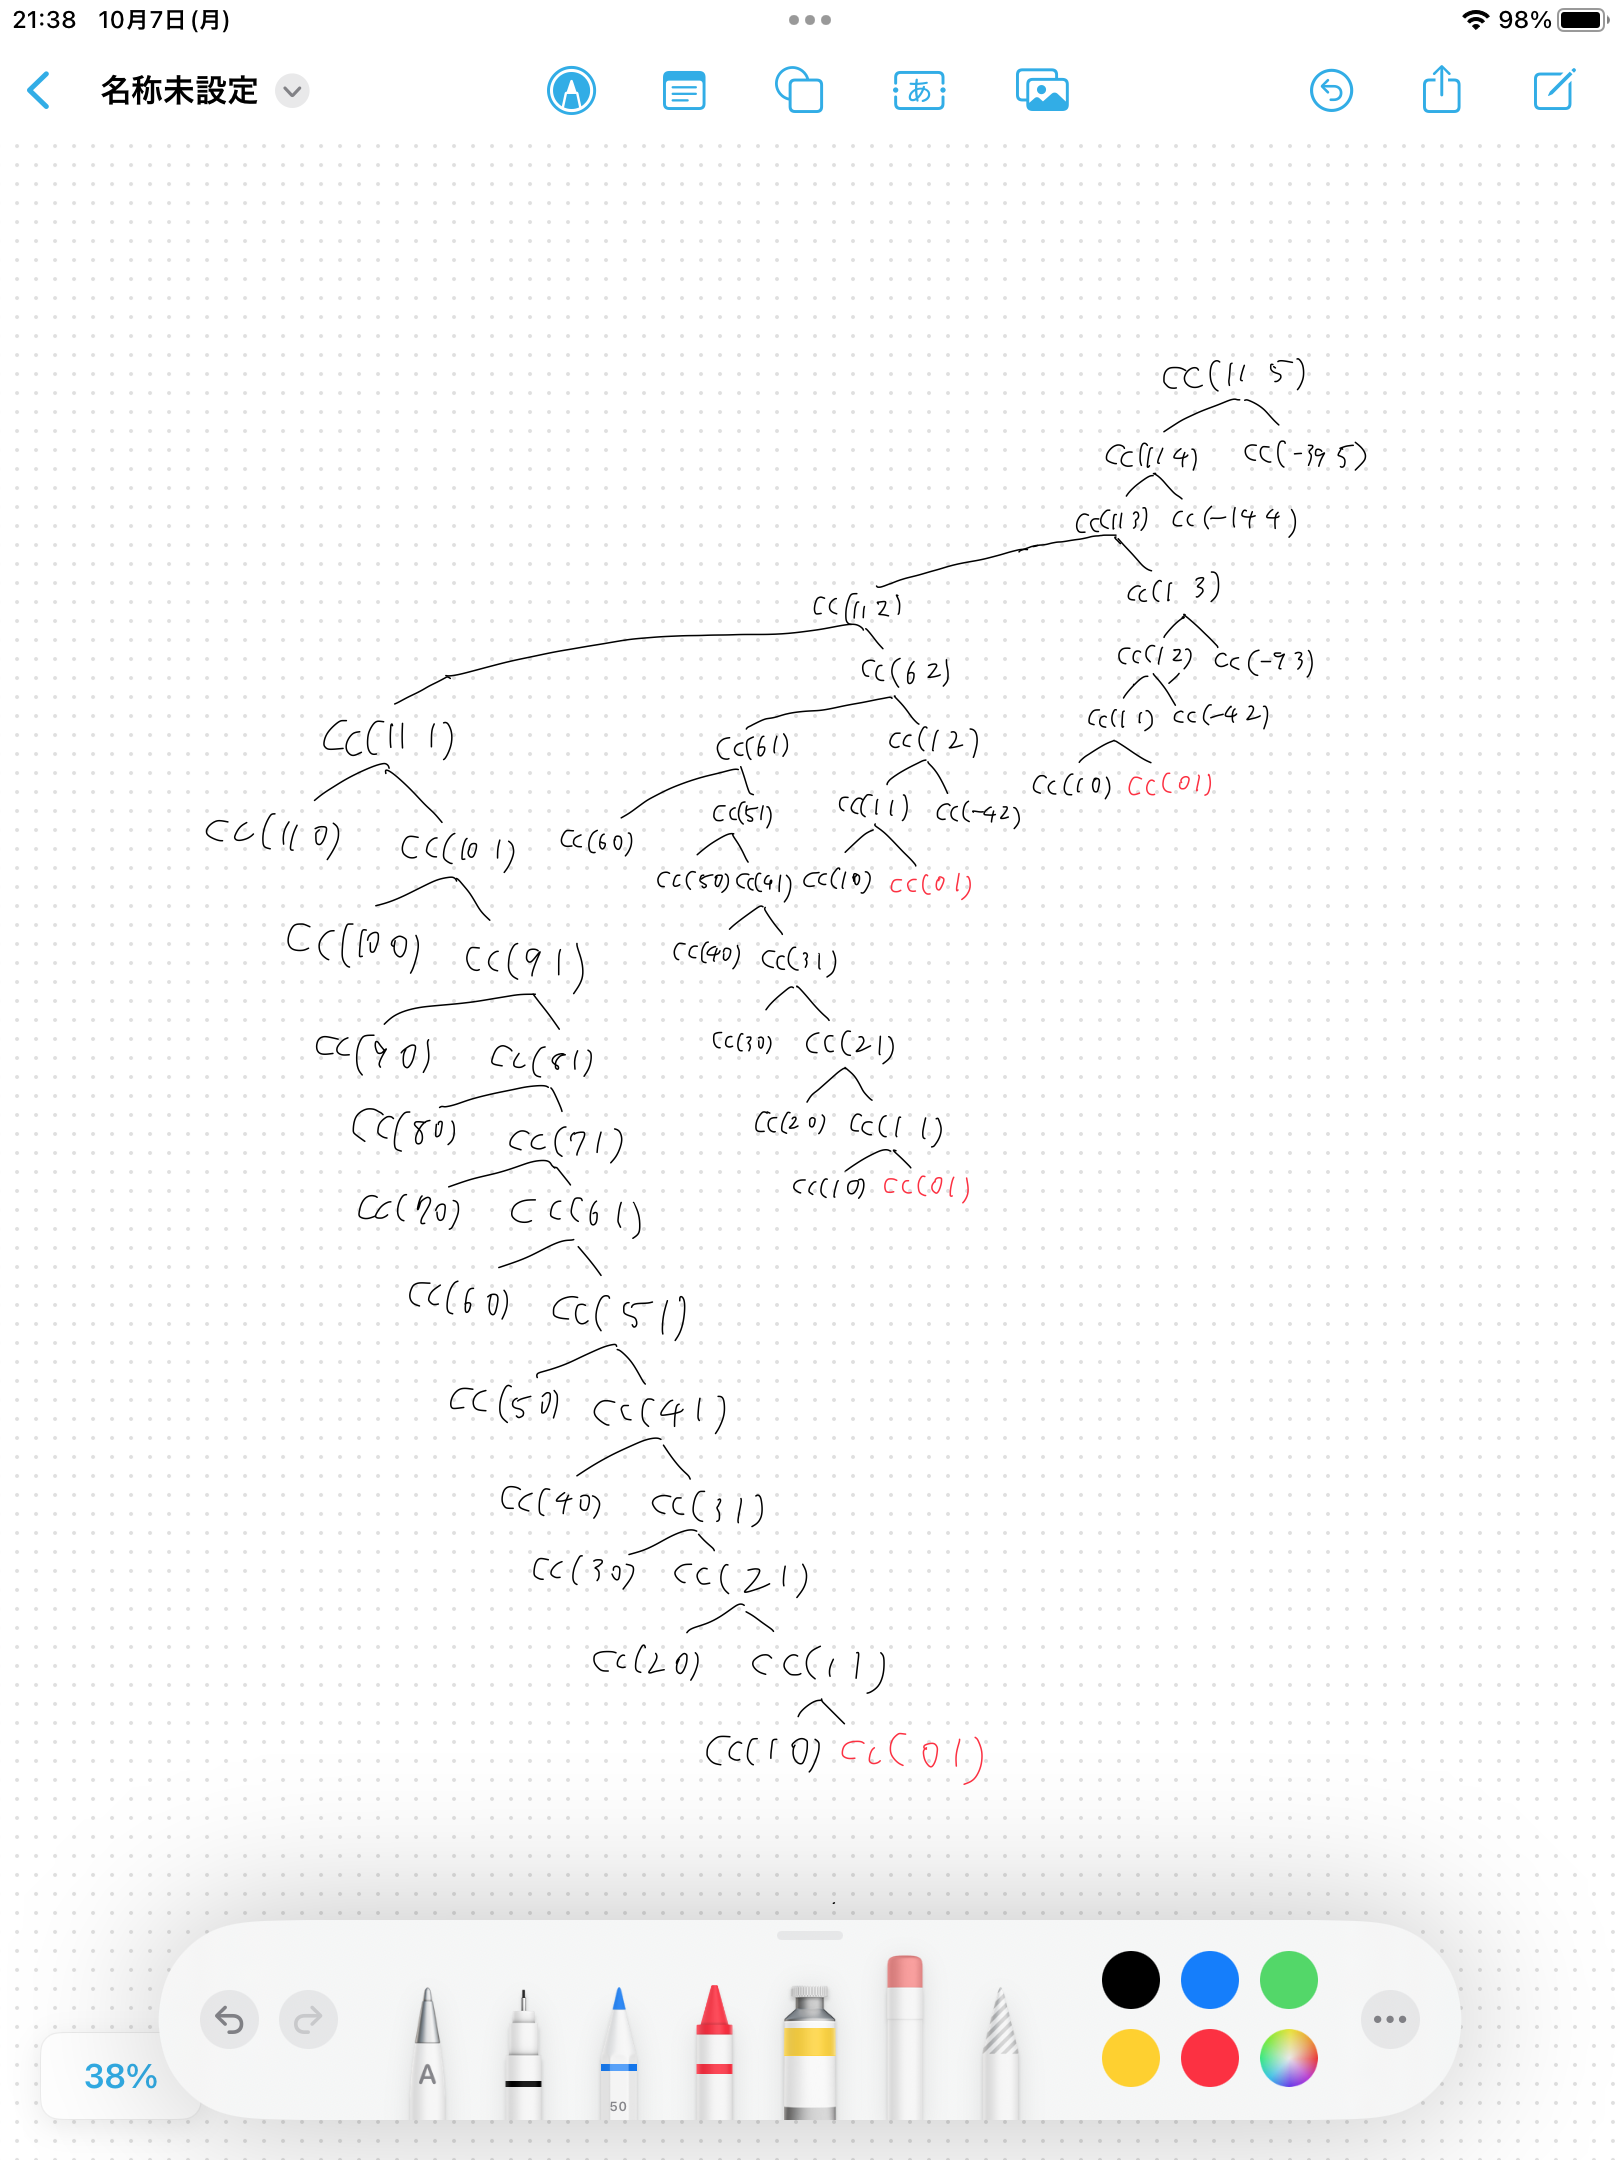 21:38 10月7日(月)
98%
名称未設定
あ
CC(11 5)
CC(11 4) CC(-39 5)
CC(11 3) CC(-14 4)
CC(11 2) CC(1 3)
CC(6 2) CC(1 2) CC(-9 3)
CC(11 1) CC(6 1) CC(1 2) CC(1 1) CC(-4 2)
CC(1 0) CC(0 1)
CC(11 0) CC(10 1) CC(6 0) CC(5 1) CC(1 1) CC(-4 2)
CC(5 0) CC(4 1) CC(1 0) CC(0 1)
CC(10 0) CC(9 1) CC(4 0) CC(3 1)
CC(9 0) CC(8 1) CC(3 0) CC(2 1)
CC(8 0) CC(7 1) CC(2 0) CC(1 1)
CC(7 0) CC(6 1) CC(1 0) CC(0 1)
CC(6 0) CC(5 1)
CC(5 0) CC(4 1)
CC(4 0) CC(3 1)
CC(3 0) CC(2 1)
CC(2 0) CC(1 1)
CC(1 0) CC(0 1)
38%
A
50